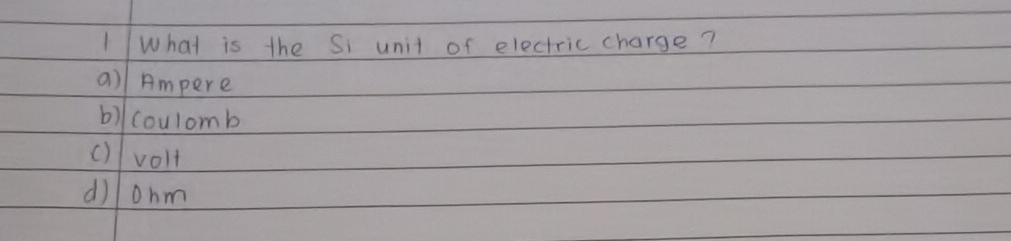 1 What is the Si unit of electric charge ?
a) Ampere
b) Coulomb
c) volt
d) Ohm